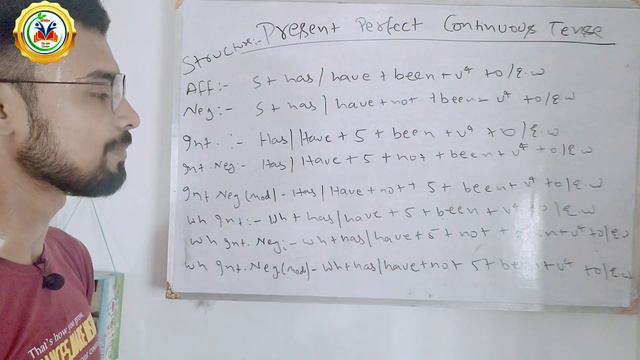 Present Perfect Continuous Tense
Structure:-
Aff:- S + has / have + been + v⁴ + o / E.w
Neg:- S + has / have + not + been + v⁴ + o / E.w
Int.:- Has / Have + S + been + v⁴ + o / E.w
Int. Neg:- Has / Have + S + not + been + v⁴ + o / E.w
Int Neg (mod) - Has / Have + not + S + been + v⁴ + o / E.w
Wh Int:- Wh + has / have + S + been + v⁴ + o / E.w
Wh Int. Neg:- Wh + has / have + S + not + been + v⁴ + o / E.w
Wh Int. Neg (mod) - Wh + has / have + not + S + been + v⁴ + o / E.w
That's how you